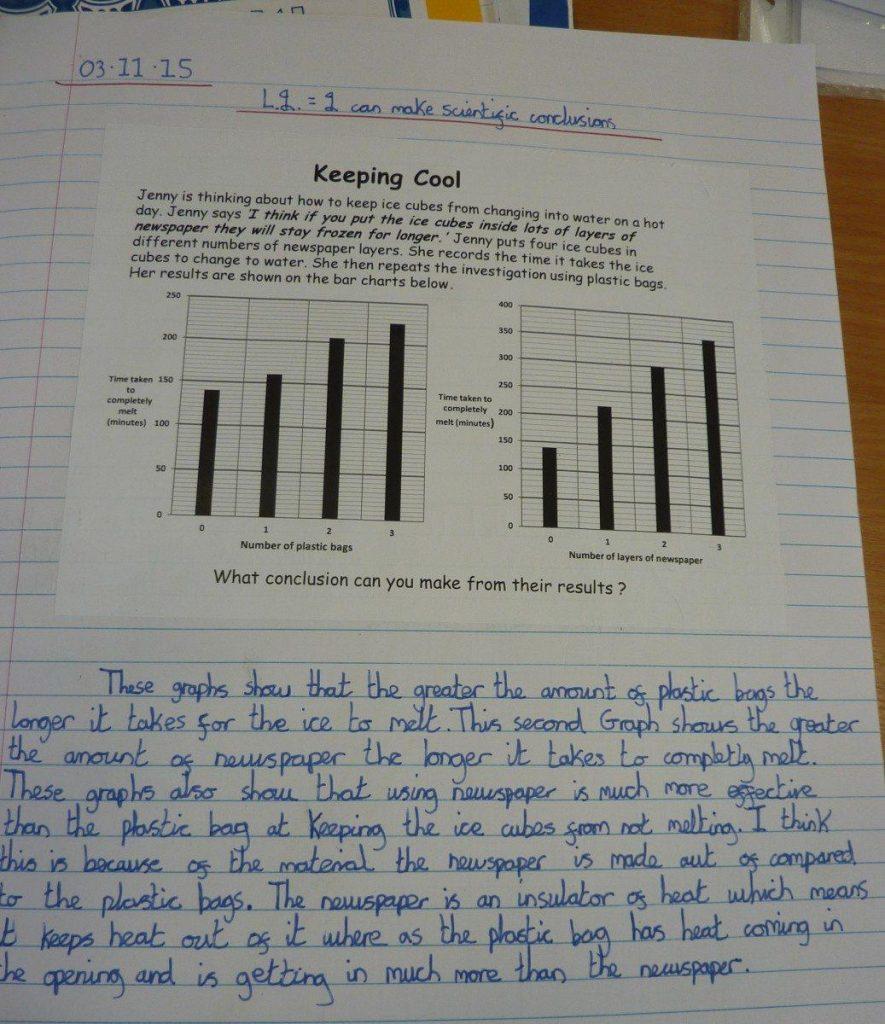 03.11.15
L.I. = I can make scientific conclusions
Keeping Cool
Jenny is thinking about how to keep ice cubes from changing into water on a hot
day. Jenny says 'I think if you put the ice cubes inside lots of layers of
newspaper they will stay frozen for longer.' Jenny puts four ice cubes in
different numbers of newspaper layers. She records the time it takes the ice
cubes to change to water. She then repeats the investigation using plastic bags.
Her results are shown on the bar charts below.
250
200
150
100
50
0
Time taken
to
completely
melt
(minutes)
0 1 2 3
Number of plastic bags
400
350
300
250
200
150
100
50
0
Time taken to
completely
melt (minutes)
0 1 2 3
Number of layers of newspaper
What conclusion can you make from their results ?
These graphs show that the greater the amount of plastic bags the
longer it takes for the ice to melt. This second Graph shows the greater
the amount of newspaper the longer it takes to completly melt.
These graphs also show that using newspaper is much more effective
than the plastic bag at Keeping the ice cubes from not melting. I think
this is because of the material the newspaper is made out of compared
to the plastic bags. The newspaper is an insulator of heat which means
it keeps heat out of it where as the plastic bag has heat coming in
the opening and is getting in much more than the newspaper.